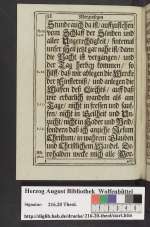 Morgensegen
Stunde auch da ist / auffzustehen
vom Schlaff der Sünden und
aller Ungerechtigkeit / sintemal
unser Heil jetzt gar nahe ist / dann
die Nacht ist vergangen / und
der Tag herbey kommen / so
hilff / daß wir ablegen die Wercke
der Finsternis / und anlegen die
Waffen deß Liechts / auff daß
wir erbarlich wandeln als am
Tage / nicht in fressen und sauf-
fen / nicht in Geilheit und Un-
zucht / nicht in Hader und Neid /
sondern daß ich anziehe Jesum
Christum / in wahrem Glauben
und Christlichem Wandel. De-
rohalben wecke mich alle Mor-
Herzog August Bibliothek Wolfenbüttel
Signatur: 216.20 Theol.
http://diglib.hab.de/drucke/216-20-theol/start.htm